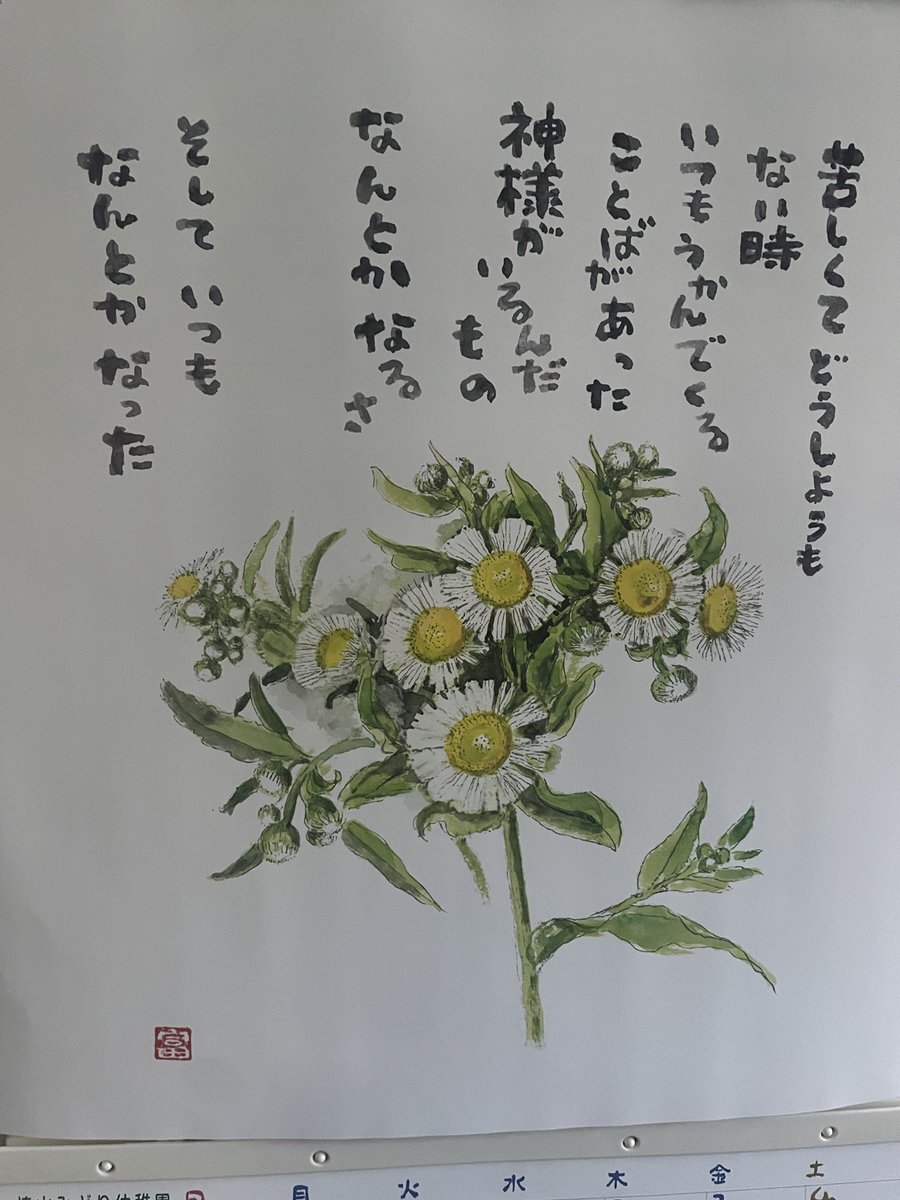 苦しくて どうしようも
ない時
いつもうかんでくる
ことばがあった
神様が いるんだ
もの
なんとか なるさ
そして いつも
なんとか なった
富
日 月 火 水 木 金 土